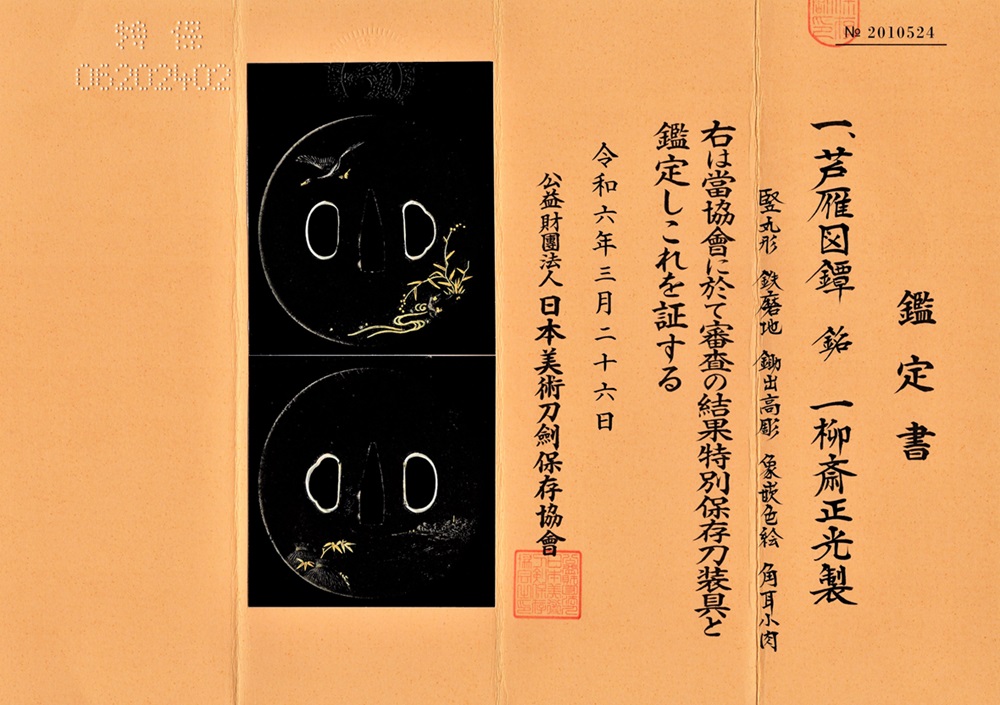 № 2010524
鑑定書
一、芦雁図鐔 銘 一柳斎正光製
竪丸形 鉄磨地 鋤出高彫 象嵌色絵 角耳小肉
右は當協會に於て審査の結果特別保存刀装具と
鑑定しこれを証する
令和六年三月二十六日
公益財團法人 日本美術刀劍保存協會
特保
06202402